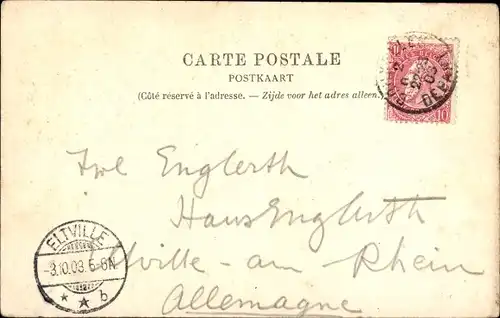 CARTE POSTALE
POSTKAART
(Côté réservé à l'adresse. — Zijde voor het adres alleen.)
10 10
Englerth
Haus Englerth
Eltville - am - Rhein
Allemagne
ELTVILLE
-3.10.03.6-8N.
* * b